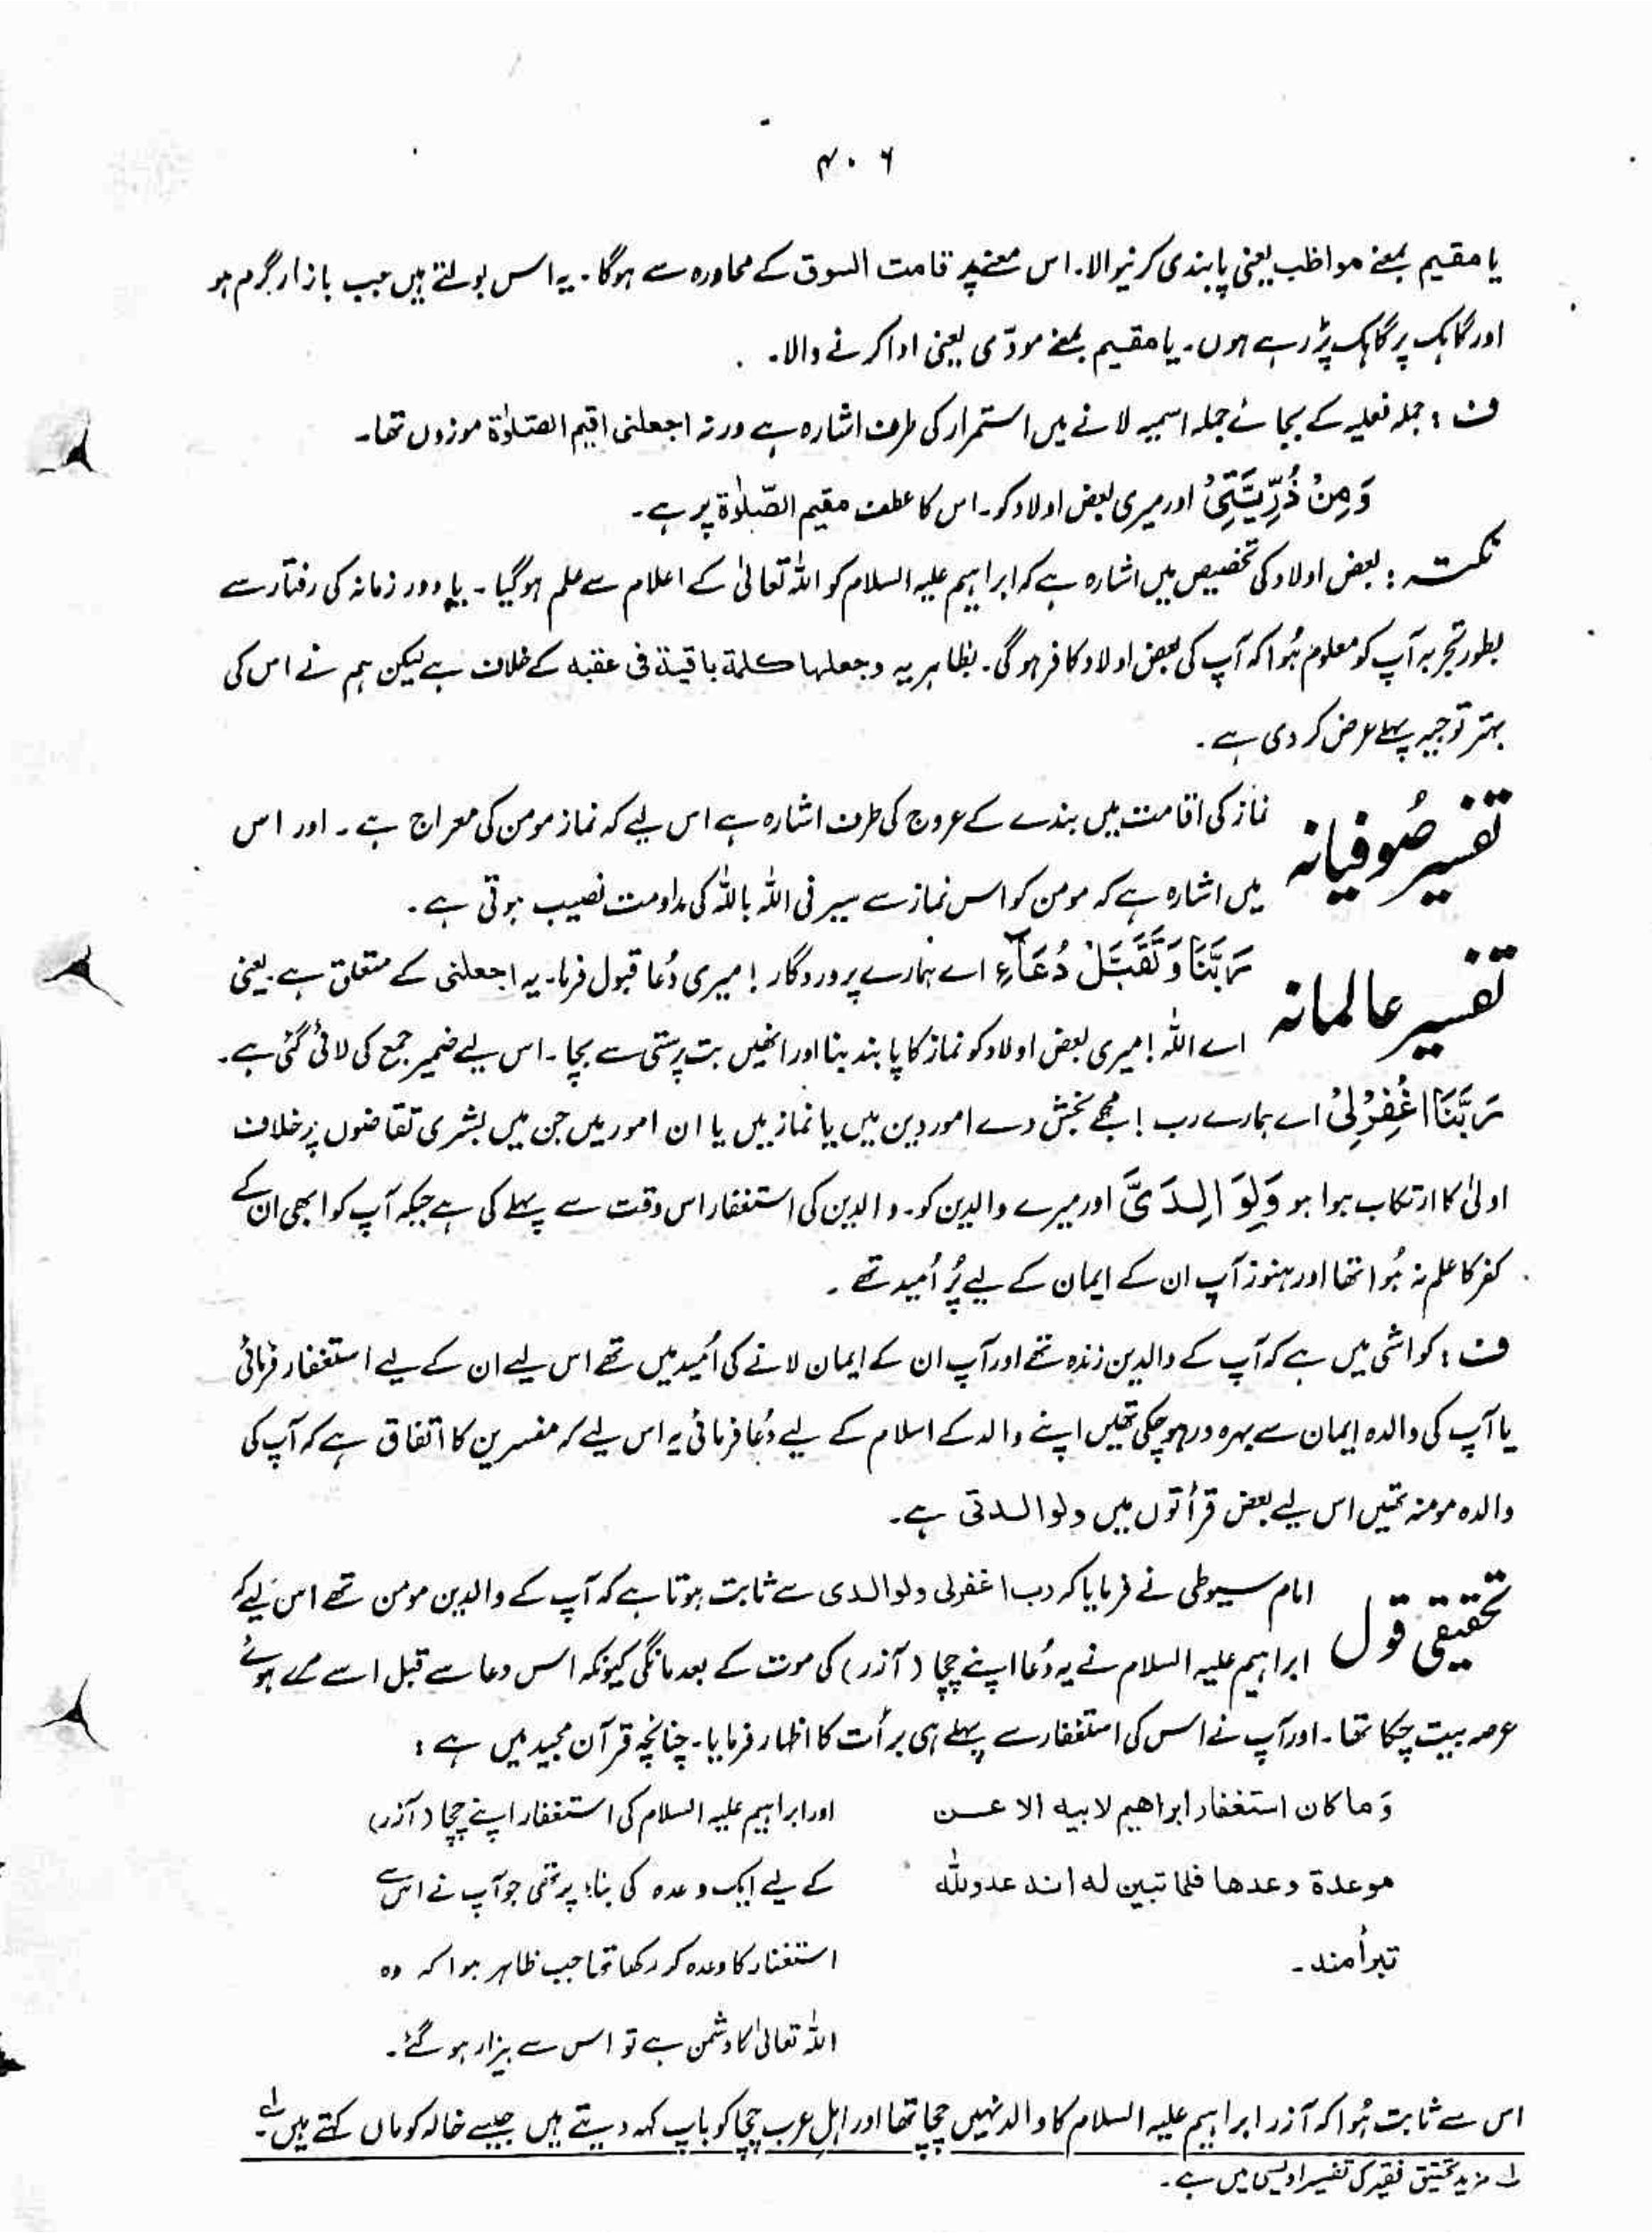 ۴۰۶
یا مقیم بمعنے مواظب یعنی پابندی کرنیوالا۔ اس معنے پر قامت السوق کے محاورہ سے ہوگا۔ یہ اس بولتے ہیں جب بازار گرم ہو
اور گاہک پر گاہک پڑ رہے ہوں۔ یا مقیم بمعنے مودّی یعنی ادا کرنے والا۔
ف : جملہ فعلیہ کے بجائے جملہ اسمیہ لانے میں استمرار کی طرف اشارہ ہے ورنہ اجعلنی اقیم الصّلوٰۃ موزوں تھا۔
وَمِنْ ذُرِّیَّتِیْ اور میری بعض اولاد کو۔ اس کا عطف مقیم الصّلوٰۃ پر ہے۔
نکتہ : بعض اولاد کی تخصیص میں اشارہ ہے کہ ابراہیم علیہ السلام کو اللہ تعالیٰ کے اعلام سے علم ہو گیا۔ یا دور زمانہ کی رفتار سے
بطور تجربہ آپ کو معلوم ہُوا کہ آپ کی بعض اولاد کافر ہوگی۔ بظاہر یہ وجعلہا کلمۃ باقیۃ فی عقبہ کے خلاف ہے لیکن ہم نے اس کی
بہتر توجیہ پہلے عرض کر دی ہے۔
تفسیر صُوفیانہ نماز کی اقامت میں بندے کے عروج کی طرف اشارہ ہے اس لیے کہ نماز مومن کی معراج ہے۔ اور اس
میں اشارہ ہے کہ مومن کو اس نماز سے سیر فی اللہ باللہ کی مداومت نصیب ہوتی ہے۔
تفسیر عالمانہ رَبَّنَا وَتَقَبَّلْ دُعَآءِ اے ہمارے پروردگار! میری دُعا قبول فرما۔ یہ اجعلنی کے متعلق ہے۔ یعنی
اے اللہ! میری بعض اولاد کو نماز کا پابند بنا اور انھیں بت پرستی سے بچا۔ اس لیے ضمیر جمع کی لائی گئی ہے۔
رَبَّنَا اغْفِرْلِیْ اے ہمارے رب! مجھے بخش دے امور دین میں یا نماز میں یا ان امور میں جن میں بشری تقاضوں پر خلاف
اولیٰ کا ارتکاب ہوا ہو وَلِوَالِدَیَّ اور میرے والدین کو۔ والدین کی استغفار اس وقت سے پہلے کی ہے جبکہ آپ کو ابھی ان کے
کفر کا علم نہ ہُوا تھا اور ہنوز آپ ان کے ایمان کے لیے پُر اُمید تھے۔
ف : کواشی میں ہے کہ آپ کے والدین زندہ تھے اور آپ ان کے ایمان لانے کی اُمید میں تھے اس لیے ان کے لیے استغفار فرمائی
یا آپ کی والدہ ایمان سے بہرہ ور ہو چکی تھیں اپنے والد کے اسلام کے لیے دُعا فرمائی یہ اس لیے کہ مفسرین کا اتفاق ہے کہ آپ کی
والدہ مومنہ تھیں اس لیے بعض قرأتوں میں ولوالدتی ہے۔
تحقیقی قول امام سیوطی نے فرمایا کہ رب اغفرلی ولوالدی سے ثابت ہوتا ہے کہ آپ کے والدین مومن تھے اس لیے کہ
ابراہیم علیہ السلام نے یہ دُعا اپنے چچا (آذر) کی موت کے بعد مانگی کیونکہ اس دعا سے قبل اسے مرے ہوئے
عرصہ بیت چکا تھا۔ اور آپ نے اس کی استغفار سے پہلے ہی برأت کا اظہار فرمایا۔ چنانچہ قرآن مجید میں ہے :
وَما کان استغفار ابراھیم لابیہ الا عن
موعدۃ وعدھا فلما تبین لہ انہ عدو للّٰہ
تبرأ منہ۔
اور ابراہیم علیہ السلام کی استغفار اپنے چچا (آذر)
کے لیے ایک وعدہ کی بناء پر تھی جو آپ نے اس سے
استغفار کا وعدہ کر رکھا تھا جب ظاہر ہوا کہ وہ
اللہ تعالیٰ کا دشمن ہے تو اس سے بیزار ہو گئے۔
اس سے ثابت ہُوا کہ آذر ابراہیم علیہ السلام کا والد نہیں چچا تھا اور اہلِ عرب چچا کو باپ کہہ دیتے ہیں جیسے خالہ کو ماں کہتے ہیں لے۔
لے مزید تحقیق فقیر کی تفسیر اویسی میں ہے۔